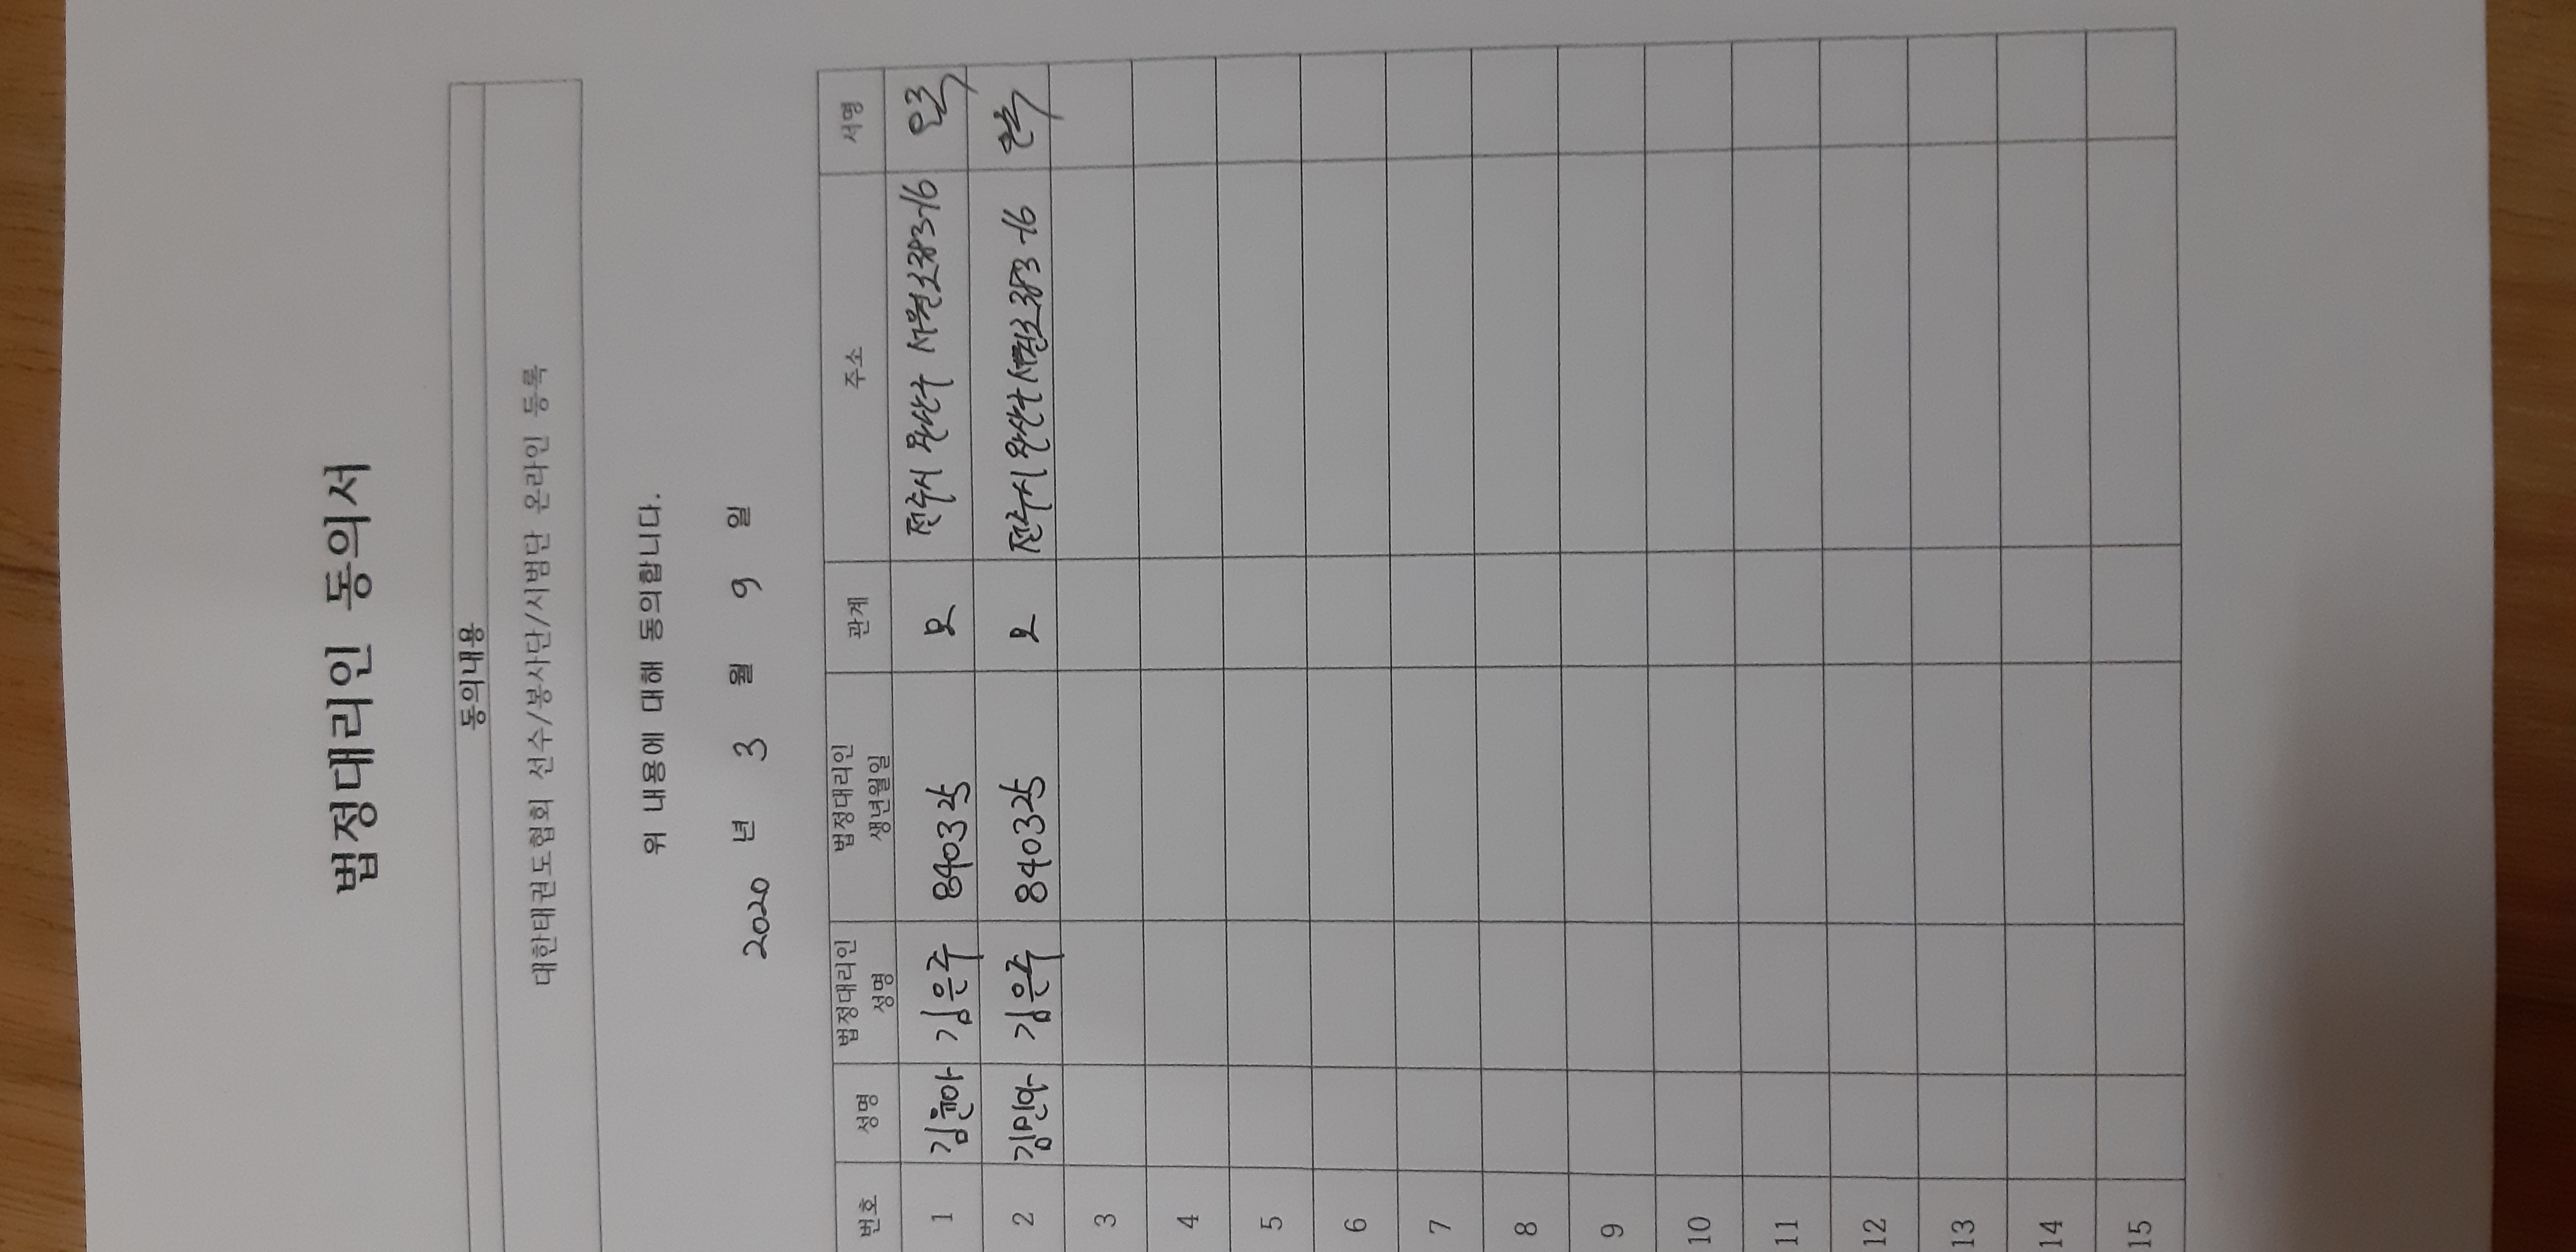 법정대리인 동의서
동의내용
대한태권도협회 선수/봉사단/시범단 온라인 등록
위 내용에 대해 동의합니다.
2020 년 3 월 9 일
번호 성명 법정대리인 성명 법정대리인 생년월일 관계 주소 서명
1 김윤아 김은주 840325 모 전주시 완산구 서원로383-16
2 김민아 김은주 840325 모 전주시 완산구 서원로383-16
3
4
5
6
7
8
9
10
11
12
13
14
15